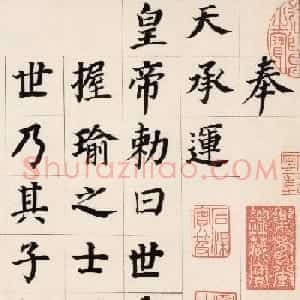 奉
天承運
皇帝勅曰世
握瑜之士
世乃其子
Shufaziliao.com